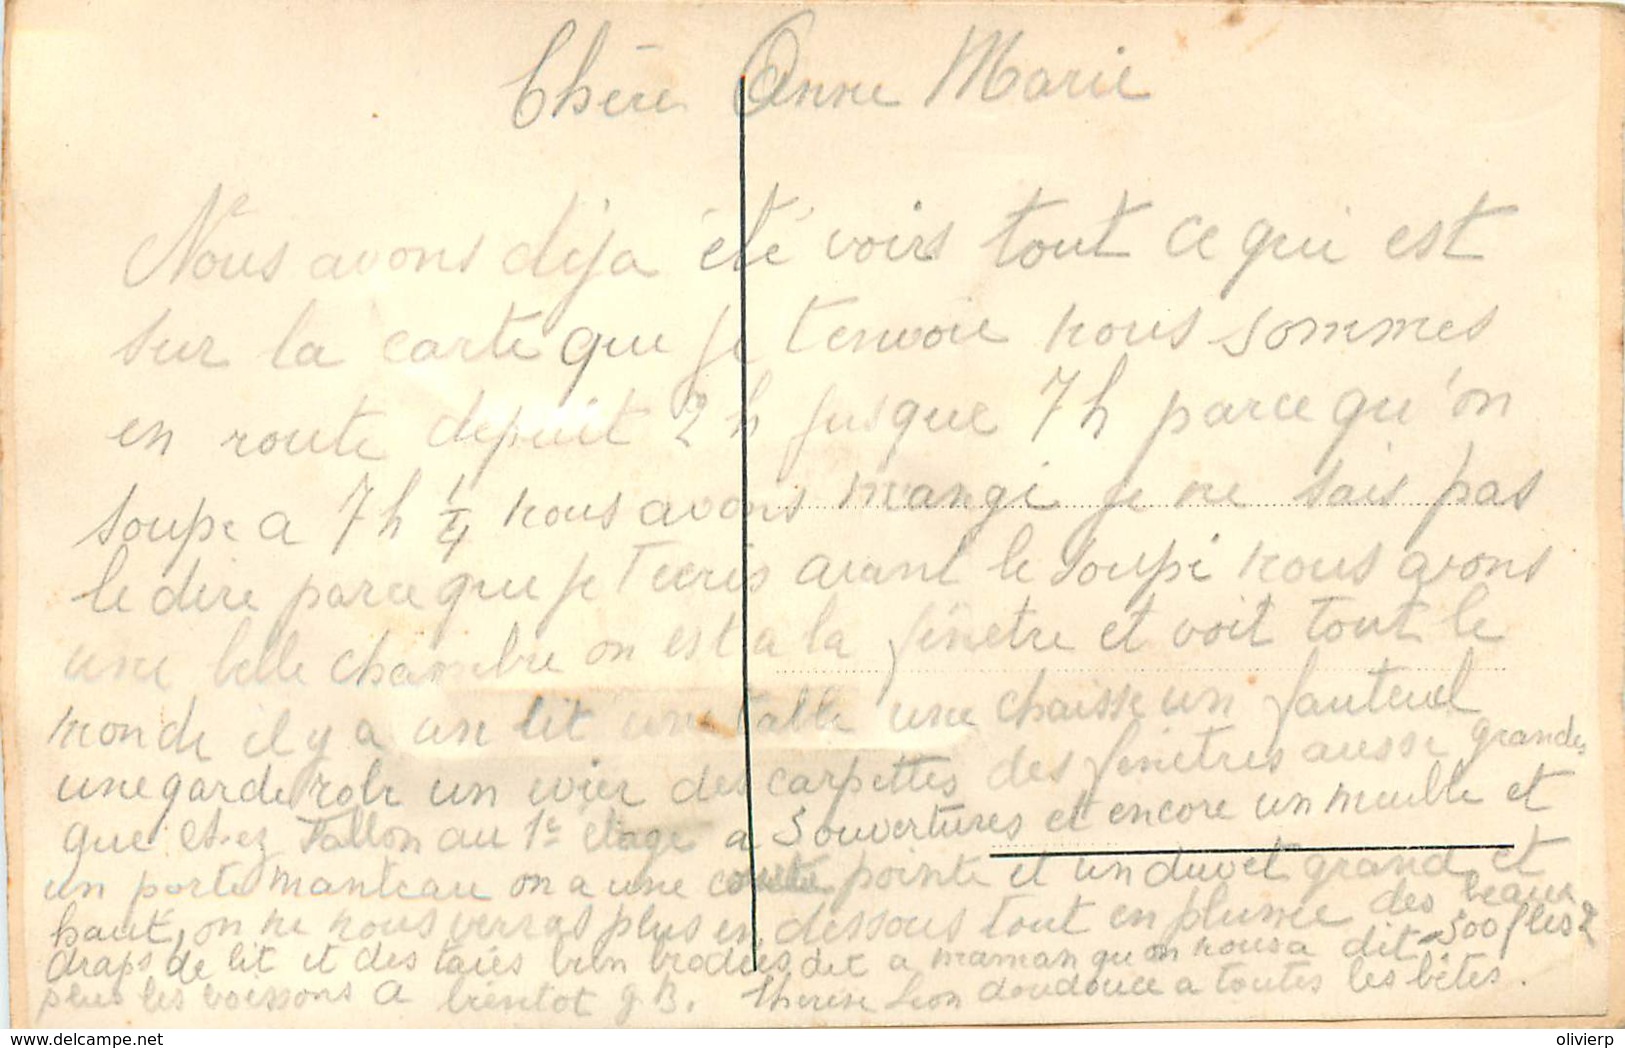 Chère Anne Marie
Nous avons dèja été voirs tout ce qui est
sur la carte que je t'envoie nous sommes
en route depuit 2 h jusque 7h parce qu'on
soupe a 7h 1/4 nous avons mangé je ne sais pas
le dire parce que je t'ecris avant le soupé nous avons
une belle chambre on est a la fenêtre et voit tout le
monde il y a un lit une table une chaisse un fauteuil
une garde robe un evier des carpettes des fenêtres aussi grandes
que chez Tallon au 1e étage a 3 ouvertures et encore un meuble et
un porte manteau on a une courte pointe et un duvet grand et
haut, on ne nous verras plus en dessous tout en plume des beaux
draps de lit et des taies bien brodées dit a maman qu'on nous a dit 300 f les 2
plus les boissons a bientot g B. Thérèse Leon doudouce a toutes les bêtes.
olivierp